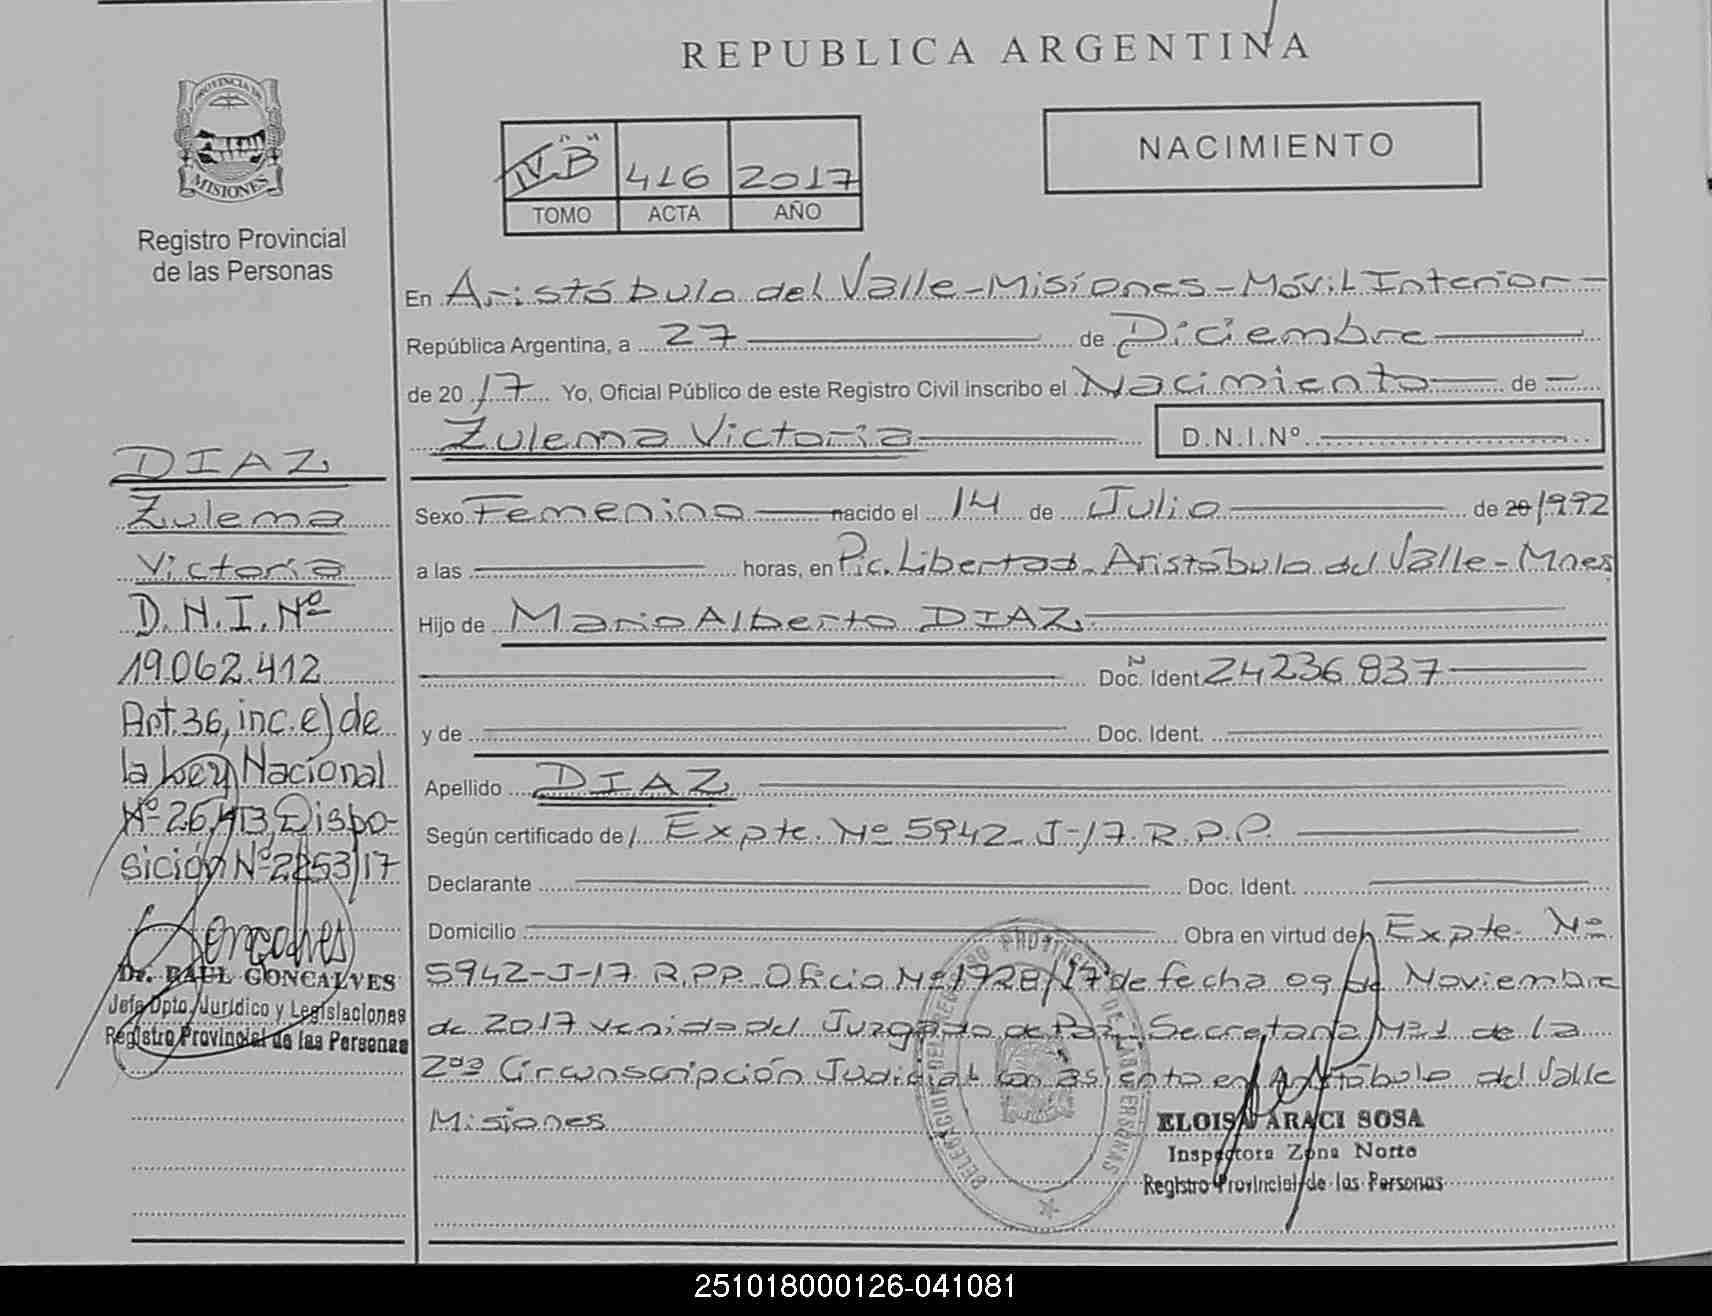 REPUBLICA ARGENTINA
PROVINCIA DE
MISIONES
Registro Provincial
de las Personas
IV."B" 416 2017
TOMO ACTA AÑO
NACIMIENTO
En Aristóbulo del Valle-Misiones-Móvil Interior-
República Argentina, a 27 de Diciembre
de 2017 Yo, Oficial Público de este Registro Civil inscribo el Nacimiento de
Zulema Victoria D.N.I.Nº
DIAZ
Zulema
Victoria
D.N.I.Nº
19.062.412
Art.36, inc.e) de
la Ley Nacional
Nº 26.413, Dispo-
sición Nº 2253/17
Goncalves
Dr. RAUL GONCALVES
Jefe Dpto. Jurídico y Legislaciones
Registro Provincial de las Personas
Sexo Femenino nacido el 14 de Julio de 20 1992
a las horas, en Pic. Libertad-Aristóbulo del Valle-Mnes
Hijo de Mario Alberto DIAZ
Doc. Ident 24236837
y de Doc. Ident.
Apellido DIAZ
Según certificado de Expte. Nº 5942-J-17 R.P.P.
Declarante Doc. Ident.
Domicilio Obra en virtud de Expte. Nº
5942-J-17 R.P.P. Oficio Nº 1728/17 de fecha 09 de Noviembre
de 2017 venido del Juzgado de Paz, Secretaría Nº1 de la
2da Circunscripción Judicial con asiento en Aristóbulo del Valle
Misiones
ELOISA ARACI SOSA
Inspectora Zona Norte
Registro Provincial de las Personas
251018000126-041081